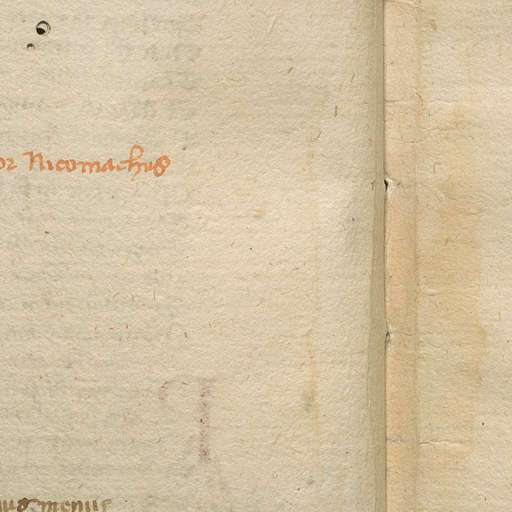 or Nicomachus
menus